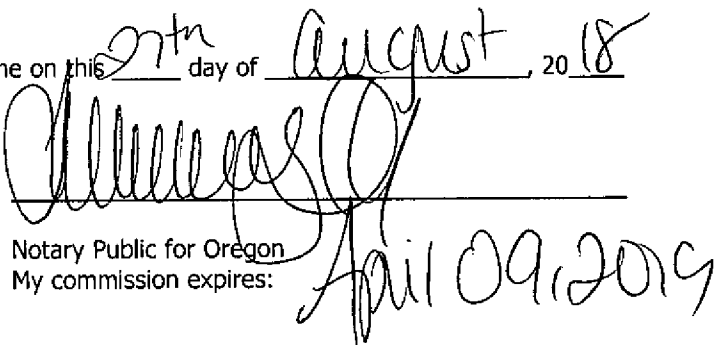 me on this 27th day of August, 2018
Notary Public for Oregon
My commission expires: April 09, 2019